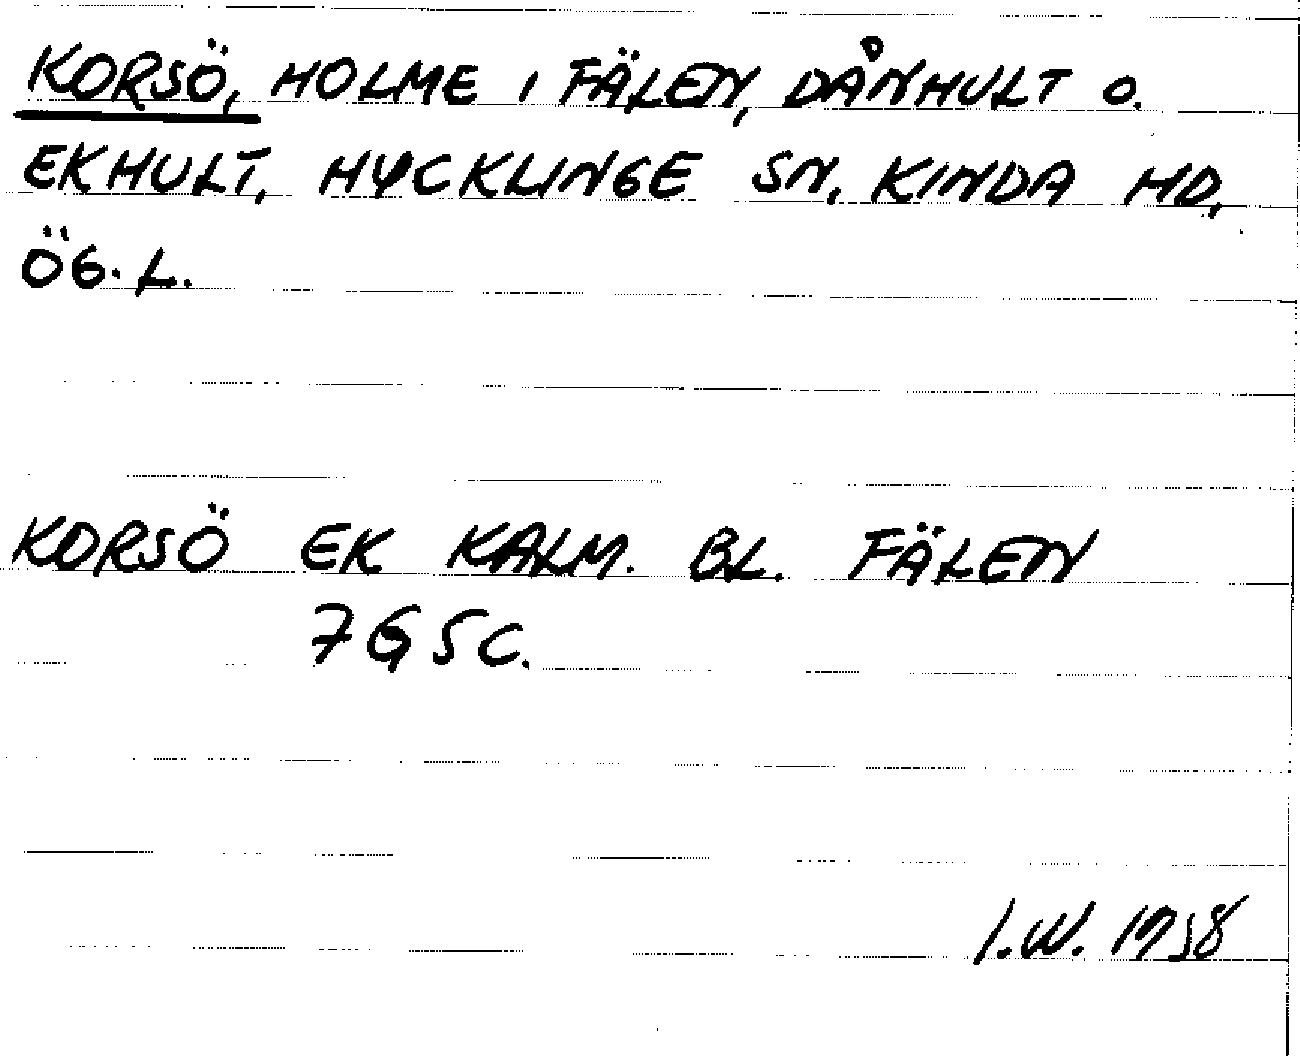 KORSÖ, HOLME I FÄLEN, DÅNHULT O.
EKHULT, HYCKLINGE SN, KINDA HD,
ÖG. L.
KORSÖ EK KALM. BL. FÄLEN
7G5C.
I.W. 1958